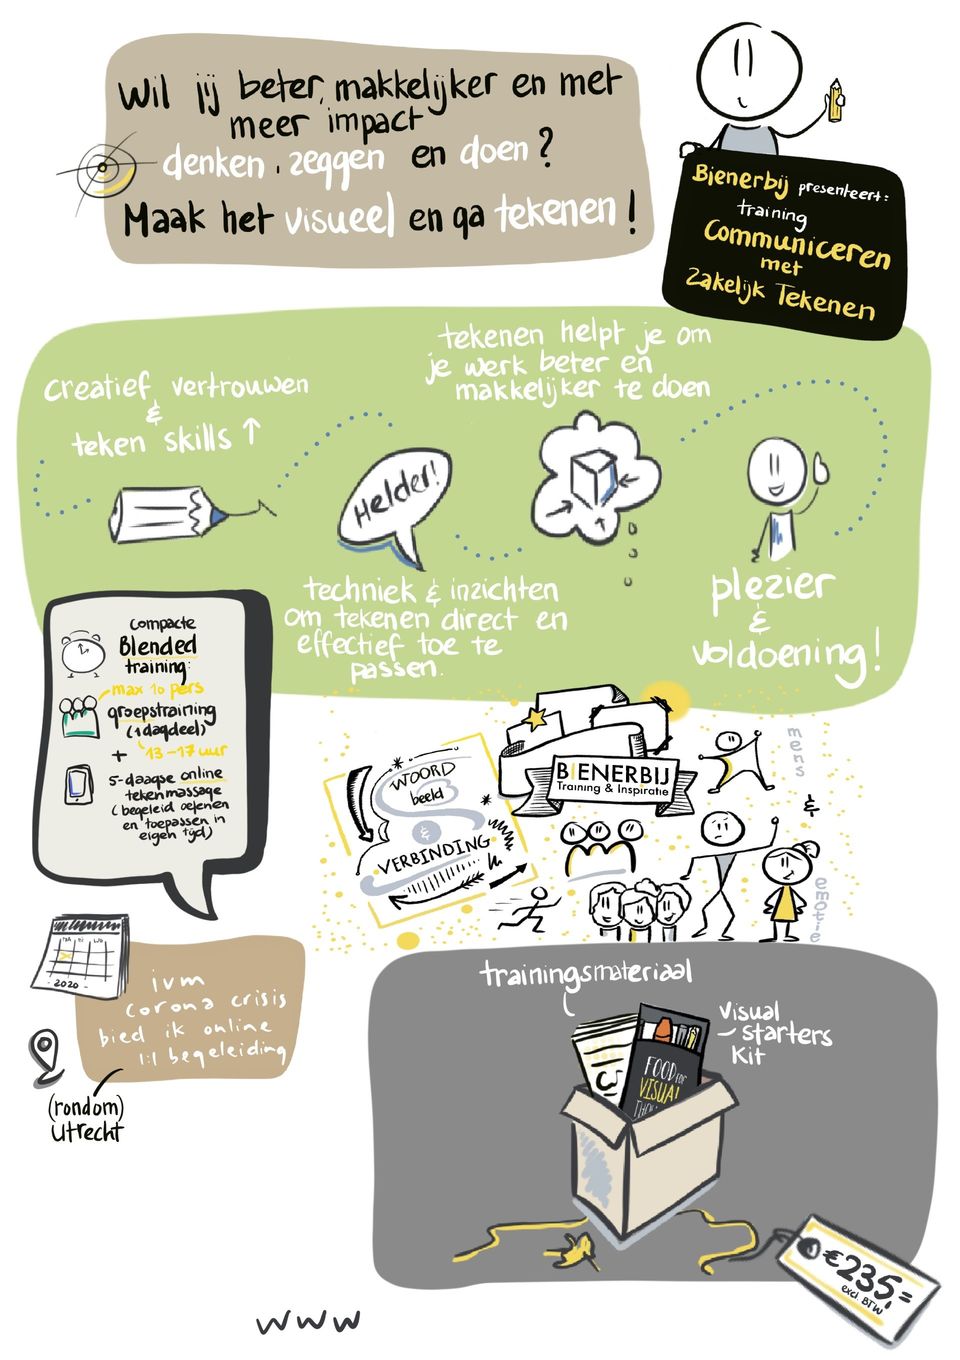 Wil jij beter, makkelijker en met
meer impact
denken, zeggen en doen?
Maak het visueel en ga tekenen!
Bienerbij presenteert:
training
Communiceren
met
Zakelijk Tekenen
creatief vertrouwen
&
teken skills ↑
tekenen helpt je om
je werk beter en
makkelijker te doen
Helder!
techniek & inzichten
om tekenen direct en
effectief toe te
passen.
plezier
&
voldoening!
compacte
Blended
training:
max 10 pers
groepstraining
(1 dagdeel)
+ 13-17 uur
5-daagse online
tekenmassage
(begeleid oefenen
en toepassen in
eigen tijd)
WOORD
beeld
&
VERBINDING
BIENERBIJ
Training & Inspiratie
mens
&
emotie
2020
ivm
corona crisis
bied ik online
1:1 begeleiding
(rondom)
Utrecht
trainingsmateriaal
Visual
starters
Kit
FOOD FOR
VISUAL
€235,=
excl. BTW
www